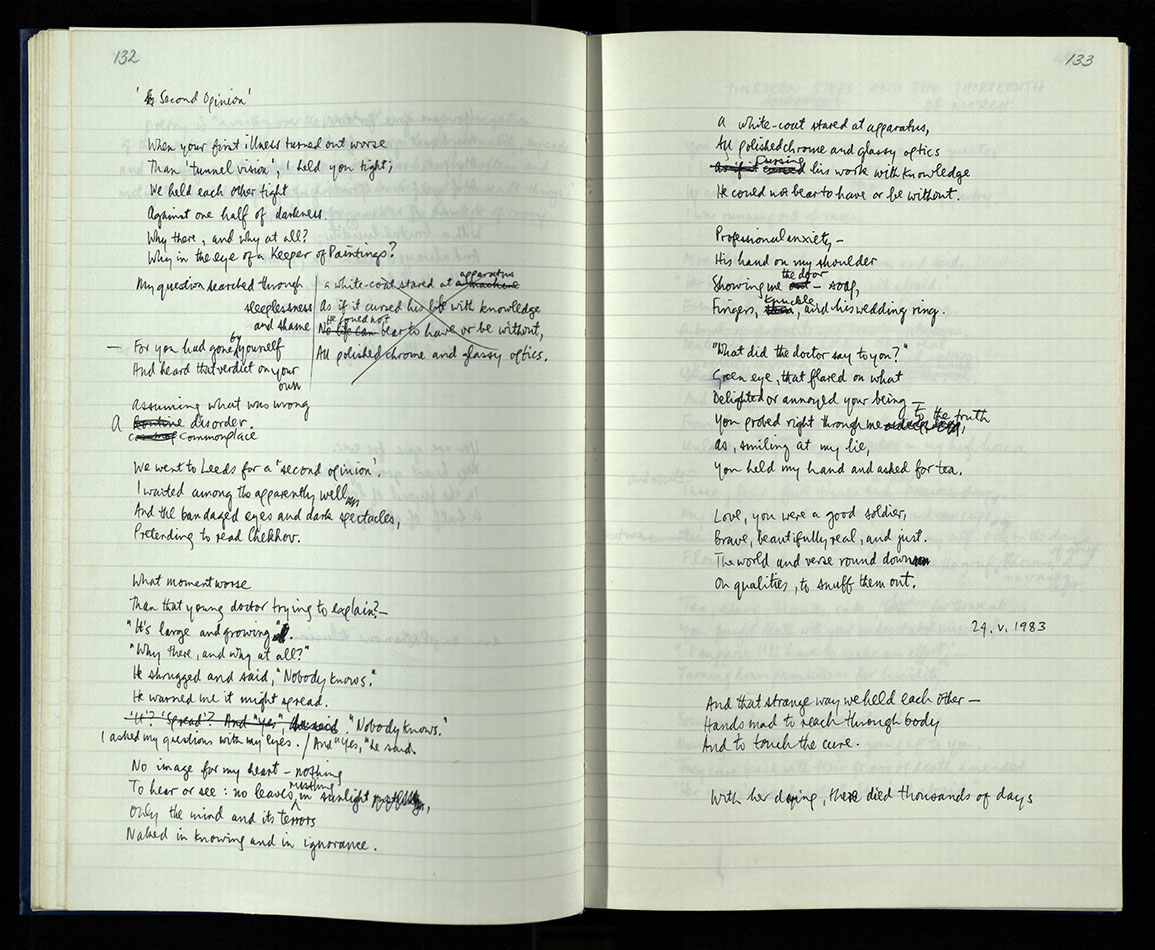 132
'A Second Opinion'
When your first illness turned out worse
Than 'tunnel vision', I held you tight;
We held each other tight
Against one half of darkness.
Why there, and why at all?
Why in the eye of a Keeper of Paintings?
My question searched through
sleeplessness
and shame
— For you had gone by yourself
And heard that verdict on your
own
assuming what was wrong
A routine disorder.
commonplace
a white-coat stared at a machine
apparatus
As if it cursed his life with knowledge
He could not
No life can bear to have or be without,
All polished chrome and glassy optics.
We went to Leeds for a 'second opinion'.
I waited among the apparently well
And the bandaged eyes and dark spectacles,
Pretending to read Chekhov.
What moment worse
Than that young doctor trying to explain? —
"It's large and growing".
"Why there, and why at all?"
He shrugged and said, "Nobody knows."
He warned me it might spread.
'It'? 'Spread'? And "yes," he said. "Nobody knows."
I asked my questions with my eyes. / And "Yes," he said.
No image for my heart — nothing
To hear or see: no leaves, rustling in sunlight
Only the mind and its terrors
Naked in knowing and in ignorance.
133
A white-coat stared at apparatus,
All polished chrome and glassy optics
Cursing
As if it cursed his work with knowledge
He could not bear to have or be without.
Professional anxiety —
His hand on my shoulder
Showing me out the door — soap,
Fingers, knuckle, and his wedding ring.
"What did the doctor say to you?"
Green eye, that flared on what
Delighted or annoyed your being —
You probed right through me to the truth
As, smiling at my lie,
You held my hand and asked for tea.
Love, you were a good soldier,
Brave, beautifully real, and just.
The world and verse round down
On qualities, to snuff them out.
24.V.1983
And that strange way we held each other —
Hands mad to reach through body
And to touch the cure.
With her dying, there died thousands of days